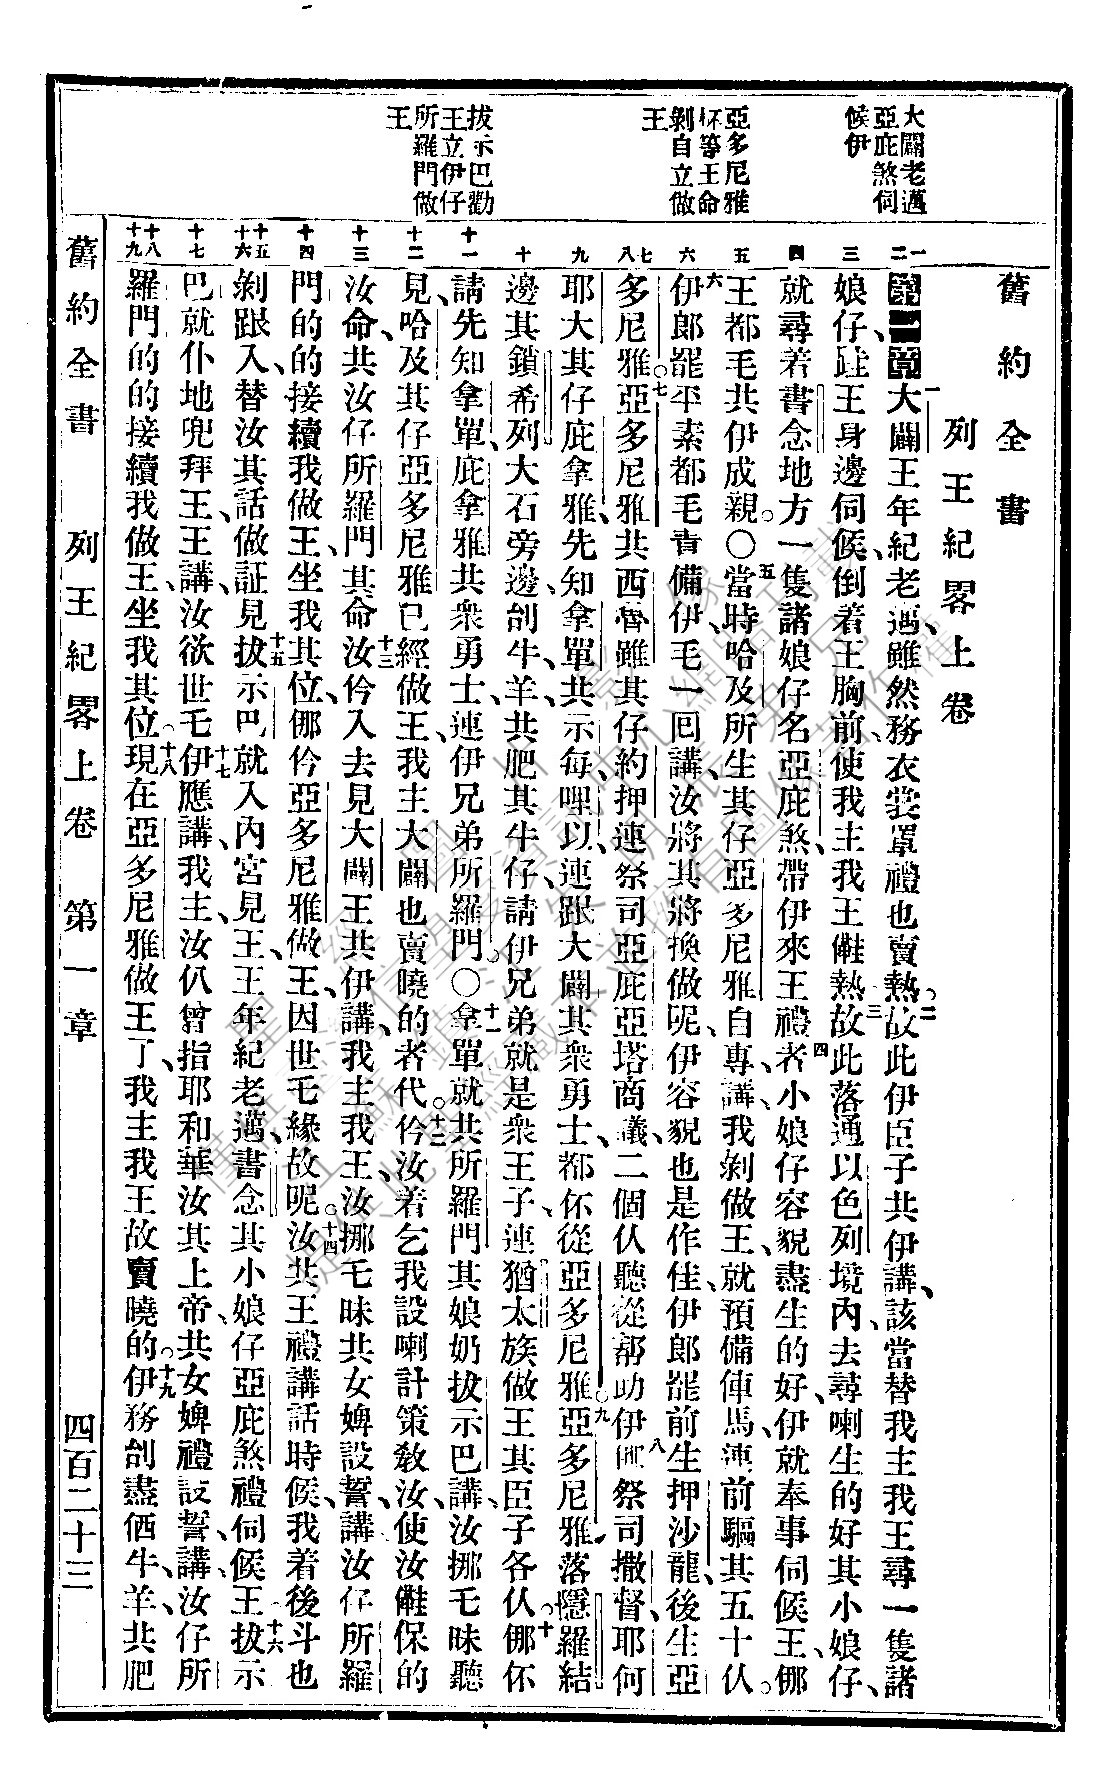 大闢老邁
亞庇煞伺
候伊
亞多尼雅
怀等王命
剝自立做
王
拔示巴勸
王立伊仔
所羅門做
王
舊約全書
列王紀畧上卷
一二
第一章大闢王年紀老邁、雖然務衣裳罩禮也賣熱。二故此伊臣子共伊講、該當替我主我王尋一隻諸
三
娘仔、跬王身邊伺候、倒着王胸前、使我主我王㑚熱。三故此落通以色列境內、去尋喇生的好其小娘仔、
四
就尋着書念地方一隻諸娘仔名亞庇煞、帶伊來王禮者。四小娘仔容貌盡生的好、伊就奉事伺候王、𠆧
五
王都毛共伊成親。〇五當時哈及所生其仔亞多尼雅自專、講、我剝做王、就預備俥馬、連前驅其五十仈。
六
六伊郎罷平素都毛責備伊、毛一囘講、汝將其將換做呢、伊容貌也是作佳、伊郎罷前生押沙龍、後生亞
七八
多尼雅。〇七亞多尼雅共西魯雖其仔約押、連祭司亞庇亞塔商議、二個仈聽從幫助伊。八祭司撒督、耶何
九
耶大其仔庇拿雅、先知拿單、共示每、哩以、連跟大闢其衆勇士、都伓從亞多尼雅。〇九亞多尼雅落隱羅結
十
邊其鎖希列大石旁邊刣牛、羊、共肥其牛仔、請伊兄弟就是衆王子、連猶太族做王其臣子各仈。十𠆧伓
十一
請先知拿單、庇拿雅、共衆勇士、連伊兄弟所羅門。〇十一拿單就共所羅門其娘奶拔示巴講、汝挪乇昧聽
十二
見、哈及其仔亞多尼雅已經做王、我主大闢也賣曉的者代。十二伶汝着乞我設喇計策敎汝、使汝㑚保的
十三
汝命、共汝仔所羅門其命。十三汝伶入去見大闢王、共伊講、我主我王、汝挪乇昧共女婢設誓、講、汝仔所羅
十四
門的的接續我做王、坐我其位、𠆧伶亞多尼雅做王、因世乇緣故呢。十四汝共王禮講話時候、我着後斗也
十五十六
剝跟入、替汝其話做証見。十五拔示巴就入內宮見王、王年紀老邁、書念其小娘仔亞庇煞禮伺候王。十六拔示
十七
巴就仆地兜拜王、王講、汝欲世乇。十七伊應講、我主、汝仈曾指耶和華汝其上帝、共女婢禮設誓、講、汝仔所
十八十九
羅門的的接續我做王、坐我其位。十八現在亞多尼雅做王了、我主我王故賣曉的。十九伊務刣盡価牛、羊、共肥
舊約全書　列王紀畧上卷　第一章　四百二十三